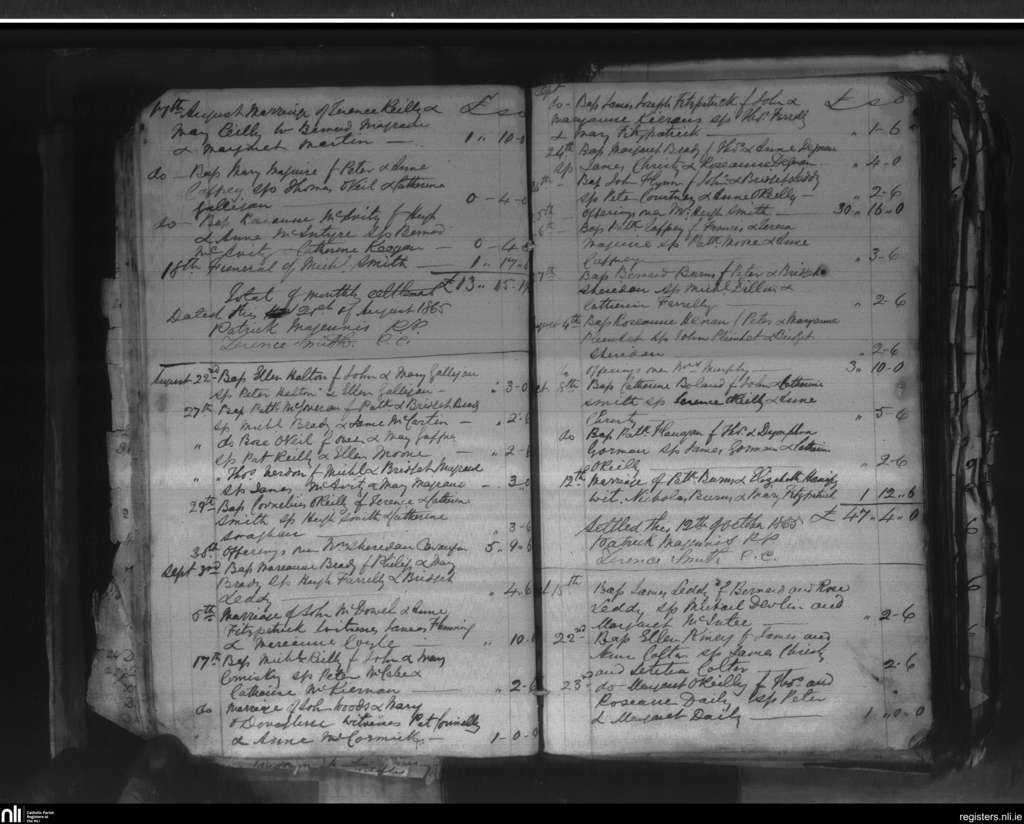 17th August Marriage of Terence Reilly & £ s D
May Reilly W Bernard Magrane
& Margaret Martin — 1 " 10-0
do — Bap Mary Maguire f Peter & Anne
Caffrey sps Thomas O'Neil & Catherine
Galligan — 0-4-0
do — Bap Rosanne McAvity f Hugh
& Anne McIntyre Sps Bernard
McAvity & Catherine Reagan — 0 4-0
18th Funeral of Michl Smith — 1 " 17"
Total of monthly settlement £13 " 15
Dated this 21st of August 1865
Patrick Maginnis P.P.
Terence Smith. C.C.
August 22nd Bap Ellen Halton f John & Mary Galligan
sps Peter Halton & Ellen Galligan — " 3-0
27th Bap Patk McGovern f Patk & Bridget Brady
sp Michl Brady & Jane McCarten — " 2-6
" do Rose O'Neil f Owen & May
sp Pat Reilly & Ellen Moore — " 2-6
" " Thos f Michl & Bridget Magrane
sps James McAvity & May Magrane — " 3-0
29th Bap Cornelius O'Reilly f Terence & Catherine
Smith sp Hugh Smith & Catherine
— " 3-6
30th offerings over Mrs Sheridan 5 " 9-6
Sept 3rd Bap Mareanne Brady f Philip & May
Brady Sp Hugh Farrelly & Bridget
Leddy " 4-6
5th Marriage of John McDowel & Anne
Fitzpatrick Witness James Fleming
& Mareanne Coyle — " 10-0
17th Bap Michl Reilly f John & Mary
sps Peter McCabe &
Catherine McKiernan — " 2-6
do Marriage of John Woods & Mary
witnesses Pat Connelly
& Anne McCormick — 1-0-0
Sept
do — Bap James Joseph Fitzpatrick f John & £ s D
Maryanne Kiernans sp Thos Farrelly
& Mary Fitzpatrick — " 1-6
24th Bap Margaret Brady f Thos & Anne Degnan
sps James Christy & Roseanne Degnan " 4-0
Bap John Flynn f John & Bridget Leddy
sp Peter Courtney & Anne O'Reilly — " 2-6
offerings over Mr Hugh Smith — 30 " 16 " 0
Bap Patk Caffrey f Francis & Teresa
Maguire sp Patk Moore & Anne
Caffrey — " 3-6
27th Bap Bernard Burns f Peter & Bridget
Sheridan sp Michl Dillon &
Catherine Farrelly — " 2-6
4th Bap Roseanne Keenan f Peter & Maryanne
Plunket sp John Plunket & Bridget
Sheridan " 2-6
" offerings over Mrs Murphy — 3 " 10-0
8th Bap Catherine Boland f John & Catherine
Smith sp Terence O'Reilly & Anne
Christy " 5-6
do Bap Patk Flanagan f Thos & Dymphna
Gorman sp James Gorman & Catherine
O'Reilly — " 2-6
12th Marriage of Patk Burns & Elizabeth
Wit. Nicholas Burns & Mary Fitzpatrick 1 12 " 6
£ 47 " 4 " 0
Settled this 12th of October 1865
Patrick Maginnis P.P.
Terence Smith C.C.
15th Bap James Leddy f Bernard and Rose
Leddy sp Michael Devlin and
Margaret McEntee " 2-6
22nd Bap Ellen Kiney f James and
Anne Colter sp James Christy
and Letetia Colter — 2-6
23rd do — Margaret O'Reilly f Thos and
Roseanne Daily sp Peter
& Margaret Daily — 1 " 0-0
nli
Catholic Parish
Registers at
the NLI
registers.nli.ie